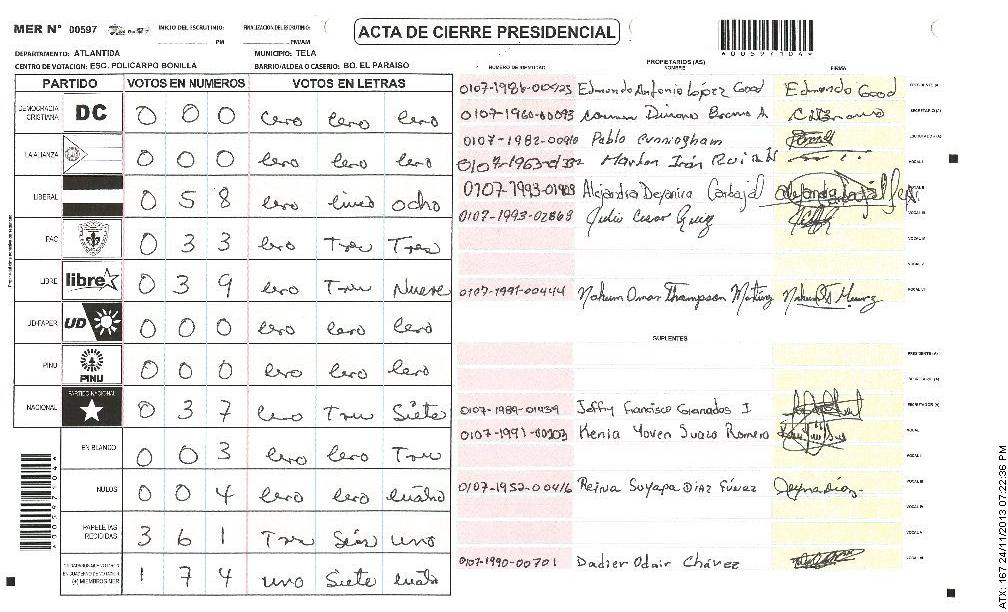 MER N° 00597 INICIO DEL ESCRUTINIO: PM FINALIZACION DEL ESCRUTINIO: PM/AM
ACTA DE CIERRE PRESIDENCIAL
DEPARTAMENTO: ATLANTIDA MUNICIPIO: TELA
CENTRO DE VOTACION: ESC. POLICARPO BONILLA BARRIO/ALDEA O CASERIO: BO. EL PARAISO
PARTIDO VOTOS EN NUMEROS VOTOS EN LETRAS
DEMOCRACIA CRISTIANA DC 0 0 0 Cero Cero Cero
LA ALIANZA 0 0 0 Cero Cero Cero
LIBERAL 0 5 8 Cero Cinco Ocho
PAC 0 3 3 Cero Tres Tres
LIBRE libre 0 3 9 Cero Tres Nueve
UD-FAPER UD 0 0 0 Cero Cero Cero
PINU PINU 0 0 0 Cero Cero Cero
NACIONAL PARTIDO NACIONAL 0 3 7 Cero Tres Siete
EN BLANCO 0 0 3 Cero Cero Tres
NULOS 0 0 4 Cero Cero Cuatro
PAPELETAS RECIBIDAS 3 6 1 Tres Seis uno
(+) MIEMBROS MER 1 7 4 uno Siete Cuatro
PROPIETARIOS (AS)
NUMERO DE IDENTIDAD NOMBRE FIRMA
0107-1986-00925 Edmondo Antonio López Good Edmondo Good PRESIDENTE (A)
0107-1960-00093 Carmen SECRETARIO (A)
0107-1982-00910 Pablo Cunningham ESCRUTADOR (A)
0107-1963- Marlon Iván Ruiz VOCAL I
0107-1993-01909 Alejandra Deyanira Carbajal VOCAL II
0107-1993-02869 Julio Cesar Ruiz VOCAL III
VOCAL IV
VOCAL V
0107-1991-00444 Nahum Omar Thompson Martinez VOCAL VI
SUPLENTES
PRESIDENTE (A)
SECRETARIO (A)
0107-1989-01439 Joffy Francisco Granados I ESCRUTADOR (A)
0107-1991-00203 Kenia Yoven Suazo Romero VOCAL I
VOCAL II
0107-1952-00416 Reina Suyapa Diaz Fúnez VOCAL III
VOCAL IV
VOCAL V
0107-1990-00701 Dadier Odair Chávez VOCAL VI
*A00597104*
ATX: 167 24/11/2013 07:22:36 PM